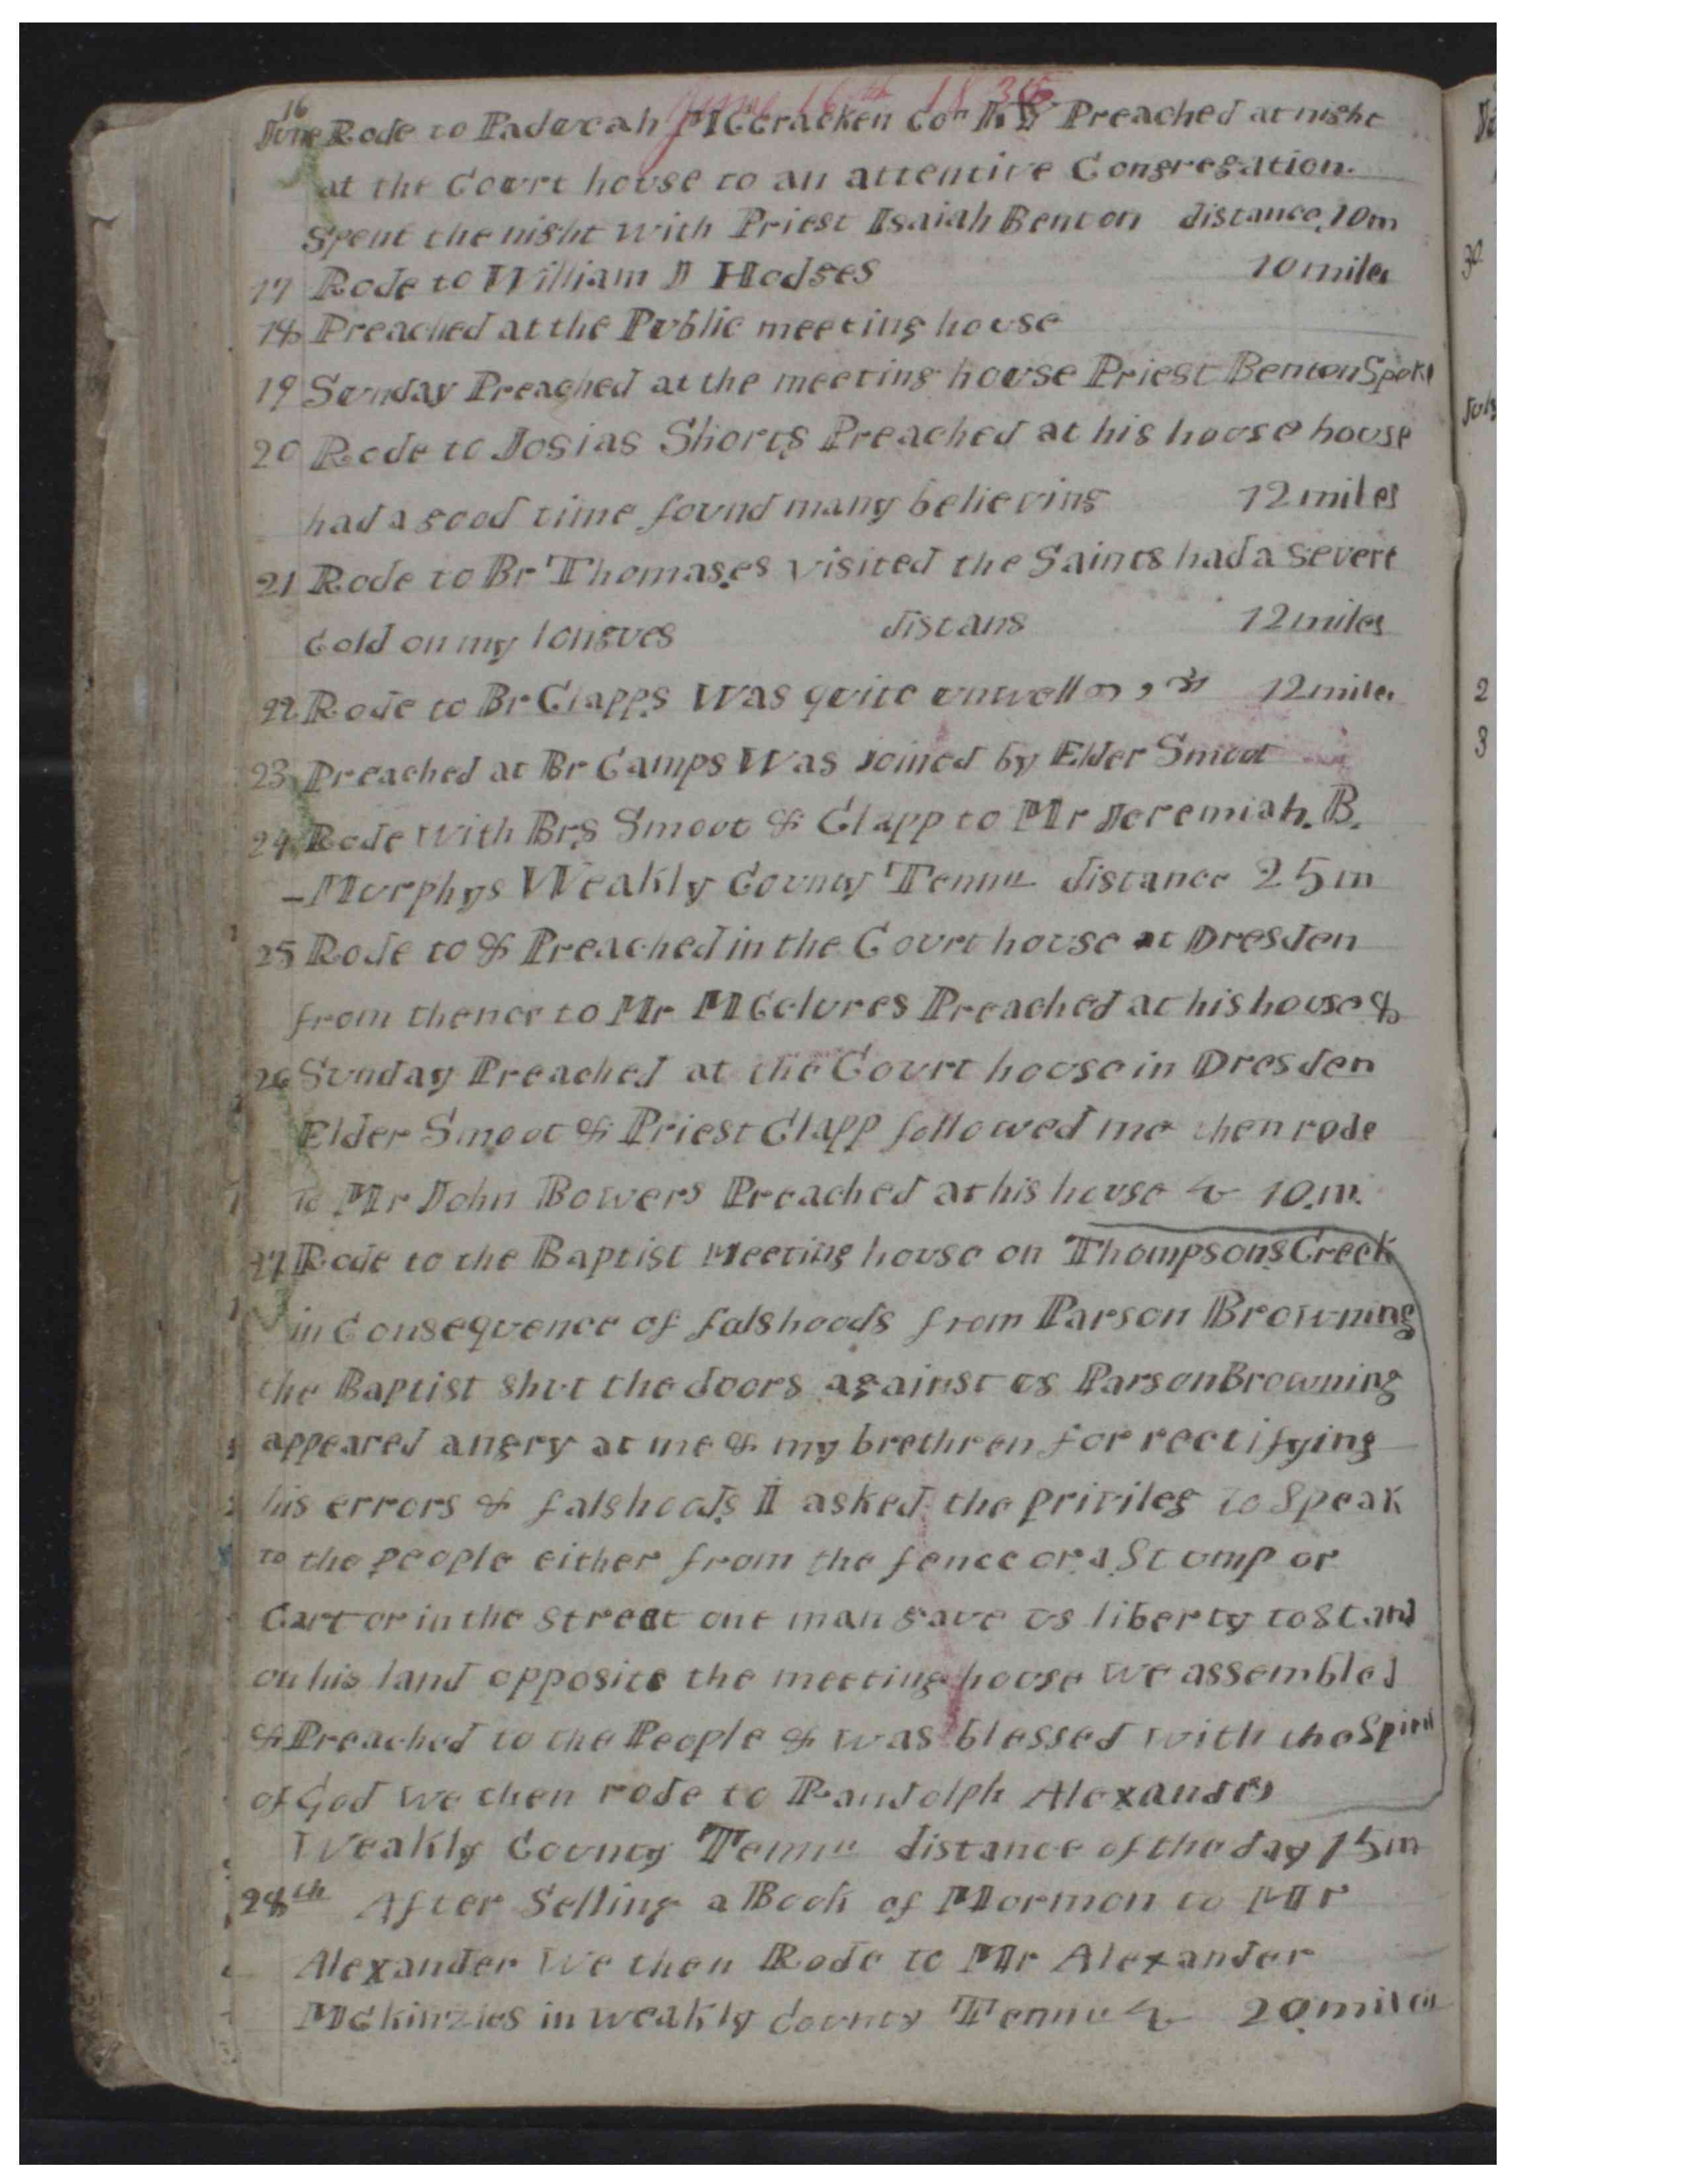 June 16th 1836
16
June Rode to Paducah McCracken Co Ky Preached at night
at the Court house to an attentive Congregation.
Spent the night with Priest Isaiah Benton distance 10m
17 Rode to William D Hodges 10 miles
18 Preached at the Public meeting house
19 Sunday Preached at the meeting house Priest Benton Spoke
20 Rode to Josias Shorts Preached at his house house
had a good time found many believing 12 miles
21 Rode to Br Thomases visited the Saints had a severe
Cold on my longues distans 12 miles
22 Rode to Br Clapps Was quite unwell 12 miles
23 Preached at Br Camps Was joined by Elder Smoot
24 Rode with Brs Smoot & Clapp to Mr Jeremiah. B.
-Murphys Weakly County Tenne distance 25m
25 Rode to & Preached in the Court house at Dresden
from thence to Mr McClures Preached at his house &
26 Sunday Preached at the Court house in Dresden
Elder Smoot & Priest Clapp followed me then rode
to Mr John Bowers Preached at his house & 10.m.
27 Rode to the Baptist Meeting house on Thompsons Creek
in Consequence of falshoods from Parson Browning
the Baptist shut the doors against us Parson Browning
appeared angry at me & my brethren for rectifying
his errors & falshoods I asked the privileg to Speak
to the people either from the fence or a Stump or
Cart or in the street one man gave us liberty to stand
on his land opposite the meeting house we assembled
& Preached to the People & was blessed with the Spirit
of God we then rode to Randolph Alexanders
Weakly County Tenne distance of the day 15m
28th After Selling a Book of Mormon to Mr
Alexander We then Rode to Mr Alexander
Mckinzies in weakly County Tenne & 20 miles
30
July
2
3